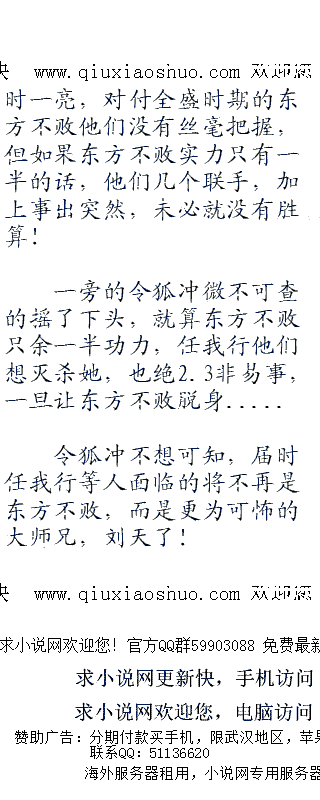 快 www.qiuxiaoshuo.com 欢迎您
时一亮，对付全盛时期的东
方不败他们没有丝毫把握，
但如果东方不败实力只有一
半的话，他们几个联手，加
上事出突然，未必就没有胜
算！
一旁的令狐冲微不可查
的摇了下头，就算东方不败
只余一半功力，任我行他们
想灭杀她，也绝2.3非易事，
一旦让东方不败脱身.....
令狐冲不想可知，届时
任我行等人面临的将不再是
东方不败，而是更为可怖的
大师兄，刘天了！
快 www.qiuxiaoshuo.com 欢迎您
求小说网欢迎您！官方QQ群59903088 免费最新
求小说网更新快，手机访问
求小说网欢迎您，电脑访问
赞助广告：分期付款买手机，限武汉地区，苹果
联系QQ：51136620
海外服务器租用，小说网专用服务器